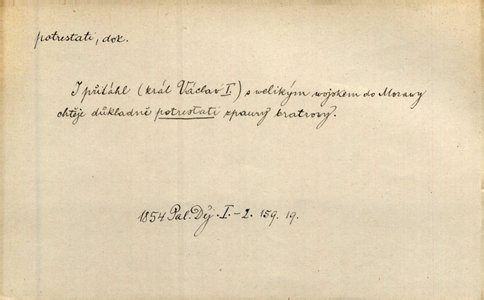 potrestati, dok.
I přitáhl (král Václav I.) s welikým wojskem do Morawy
chtěje důkladně potrestati zpaurý bratrowy.
1854 Pal. Děj. I.-2. 159. 19.